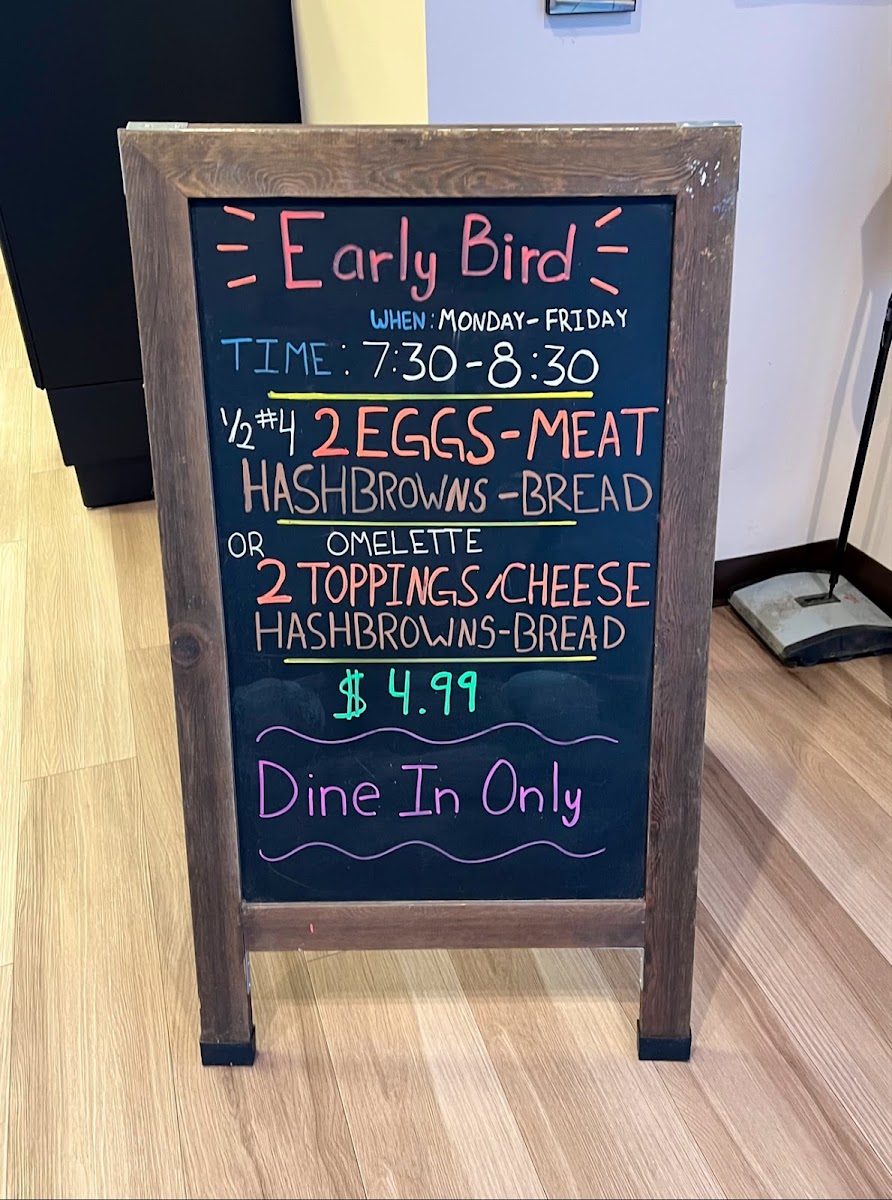 Early Bird
WHEN: MONDAY-FRIDAY
TIME: 7:30-8:30
1/2 #4 2 EGGS-MEAT
HASHBROWNS-BREAD
OR OMELETTE
2 TOPPINGS/CHEESE
HASHBROWNS-BREAD
$ 4.99
Dine In Only